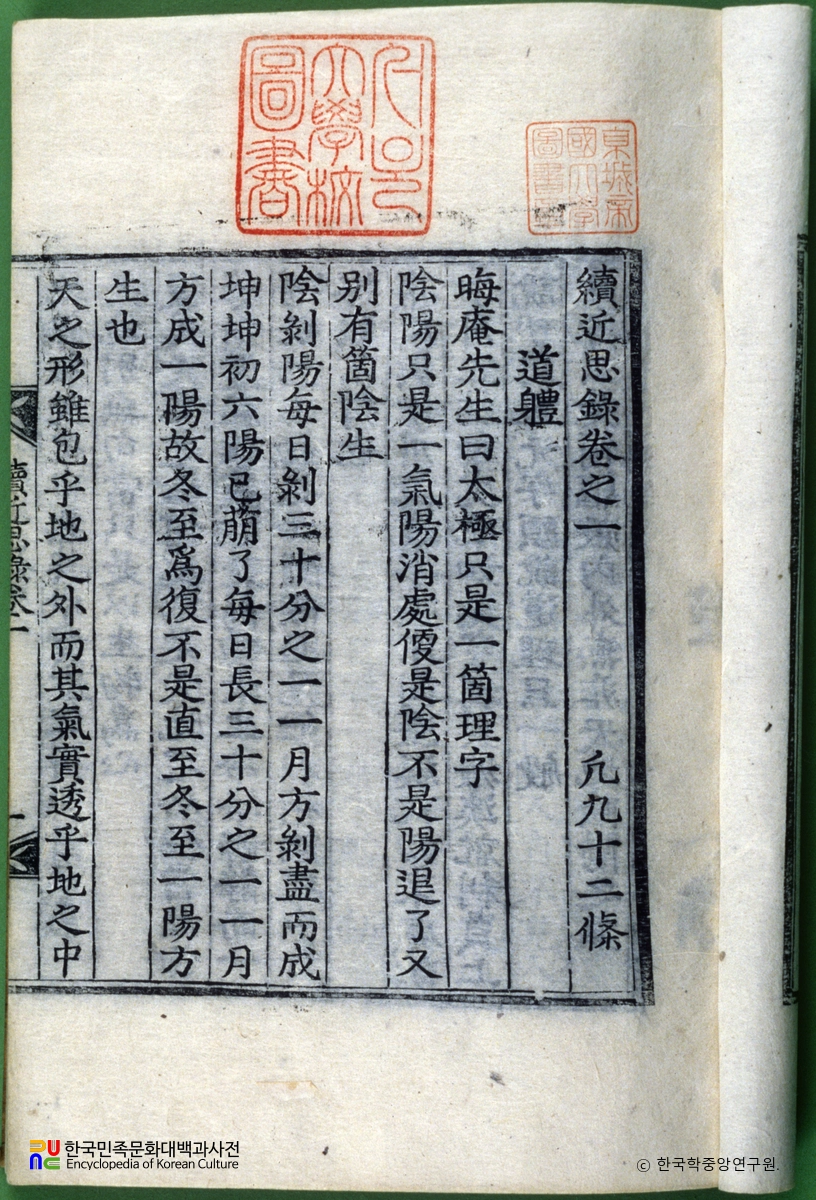 續近思錄卷之一 凡九十二條
道軆
晦庵先生曰太極只是一箇理字
陰陽只是一氣陽消處便是陰不是陽退了又
别有箇陰生
陰剝陽每日剝三十分之一一月方剝盡而成
坤坤初六陽已萠了每日長三十分之一一月
方成一陽故冬至爲復不是直至冬至一陽方
生也
天之形雖包乎地之外而其氣實透乎地之中
續近思錄卷一
一
大學校
圖書
東城帝
國大學
圖書
한국민족문화대백과사전
Encyclopedia of Korean Culture
© 한국학중앙연구원.